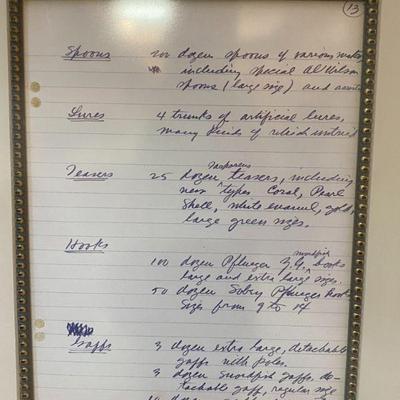 13
Spoons 200 dozen spoons of various makes
including special Al Wilson
spoons (large size) and
Lures 4 trunks of artificial lures,
many kinds of which
Teasers 25 dozen Japanese teasers, including
new types Coral, Pearl
Shell, white enamel, gold,
large green sizes.
Hooks
100 dozen Pflueger swordfish hooks
large and extra large sizes.
50 dozen Sobey Pflueger hooks
sizes from 9 to 14
Gaffs 3 dozen extra large, detachable
gaffs with poles.
3 dozen swordfish gaffs, de-
tachable gaff, regular size